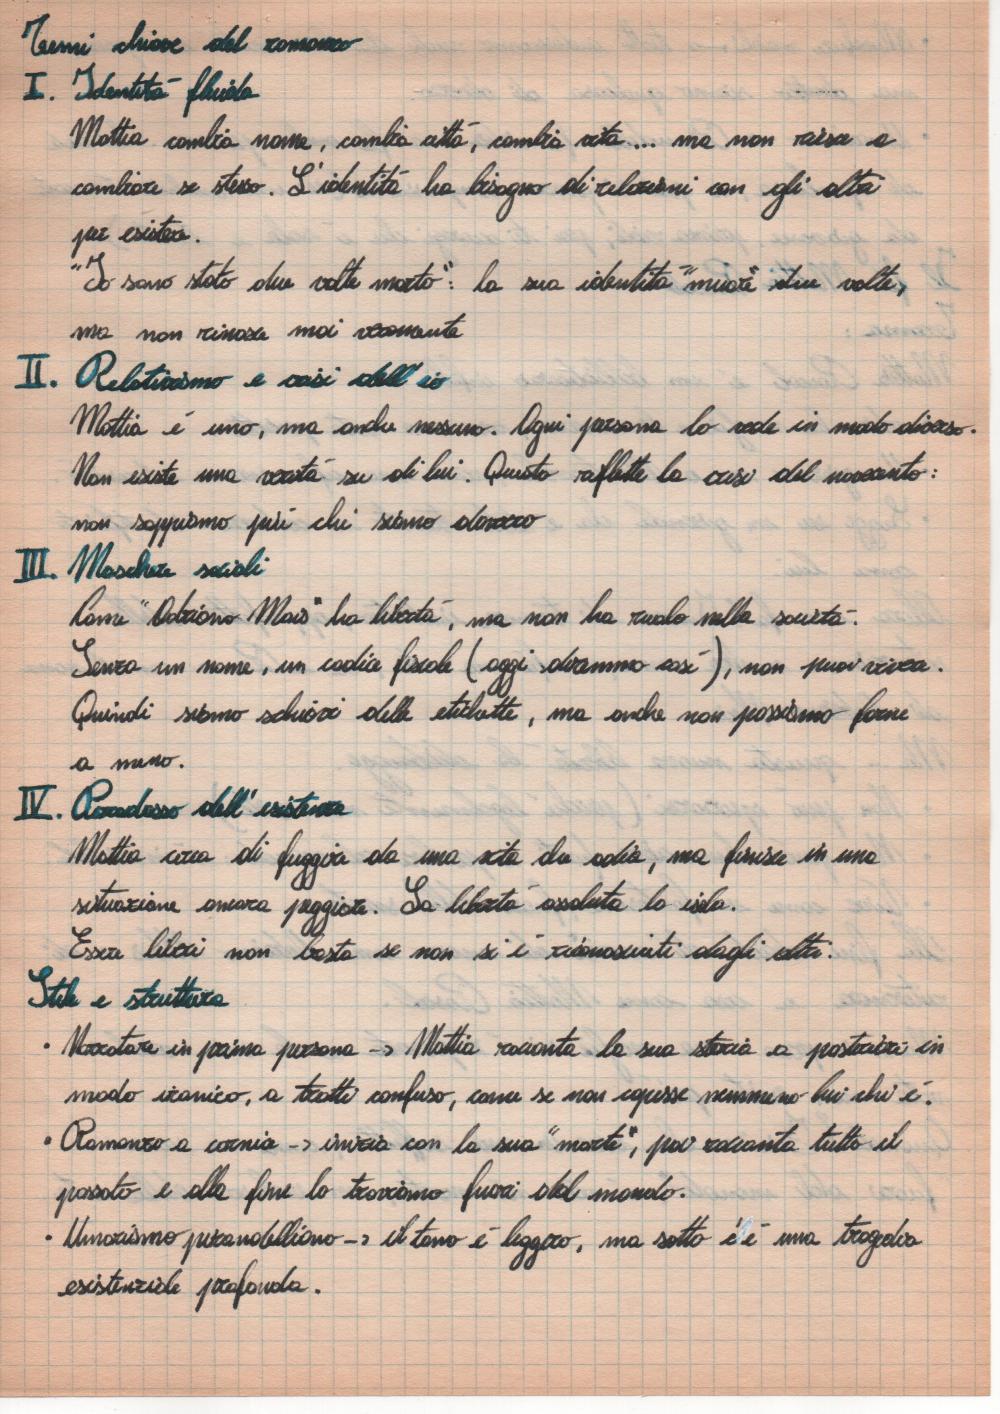 Temi chiave del romanzo
I. Identità fluida
Mattia cambia nome, cambia città, cambia vita... ma non riesce a
cambiare se stesso. L'identità ha bisogno di relazioni con gli altri
per esistere.
"Io sono stato due volte morto": la sua identità "muore" due volte,
ma non rinasce mai veramente
II. Relativismo e crisi dell'io
Mattia è uno, ma anche nessuno. Ogni persona lo vede in modo diverso.
Non esiste una verità su di lui. Questo riflette la crisi del novecento:
non sappiamo più chi siamo davvero
III. Maschere sociali
Come "Adriano Meis" ha libertà, ma non ha ruolo nella società.
Senza un nome, un codice fiscale (oggi diremmo così), non puoi vivere.
Quindi siamo schiavi delle etichette, ma anche non possiamo farne
a meno.
IV. Paradosso dell'esistenza
Mattia cerca di fuggire da una vita che odia, ma finisce in una
situazione ancora peggiore. La libertà assoluta lo isola.
Essere liberi non basta se non si è riconosciuti dagli altri.
Stile e struttura
• Narratore in prima persona -> Mattia racconta la sua storia a posteriori in
modo ironico, a tratti confuso, come se non sapesse nemmeno lui chi è.
• Romanzo a cornice -> inizia con la sua "morte", poi racconta tutto il
passato e alla fine lo troviamo fuori dal mondo.
• Umorismo pirandelliano -> il tono è leggero, ma sotto c'è una tragedia
esistenziale profonda.